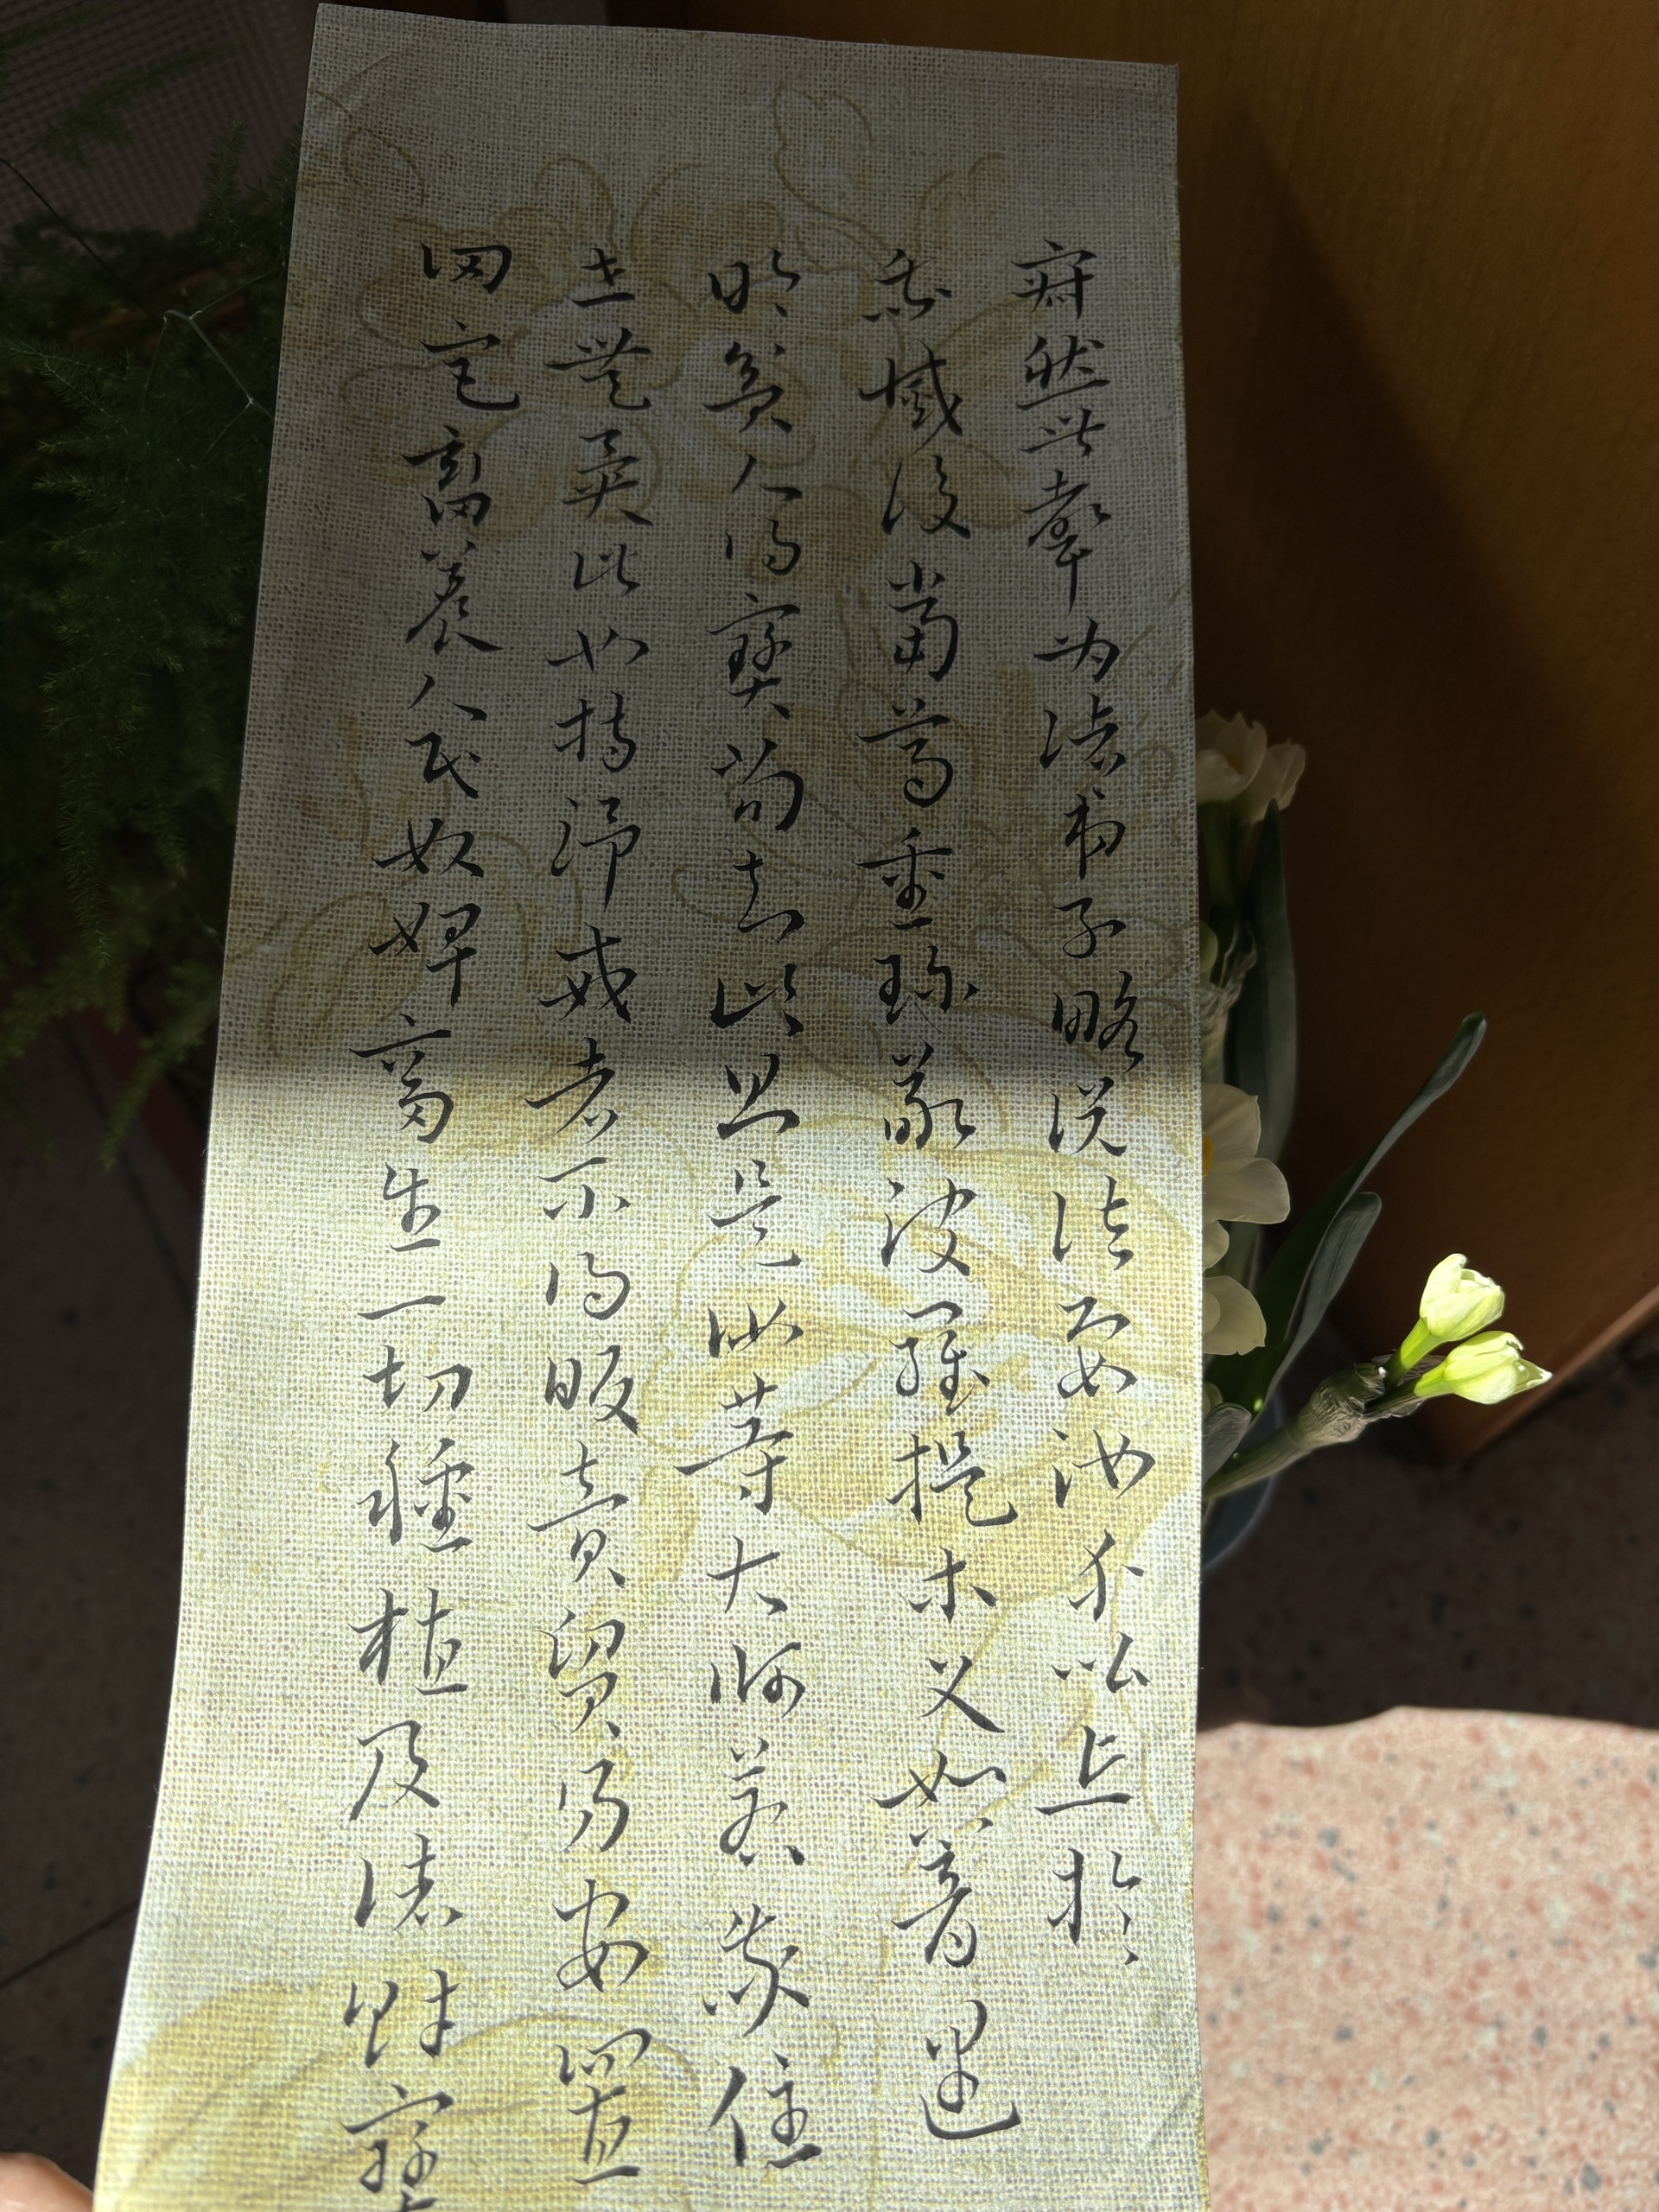 寂然無聲為諸弟子略說法要汝等比丘於
我滅後當尊重珍敬波羅提木叉如闇遇
明貧人得寶當知此則是汝等大師若我住
世無異此也持淨戒者不得販賣貿易安置
田宅畜養人民奴婢畜生一切種植及諸財寶